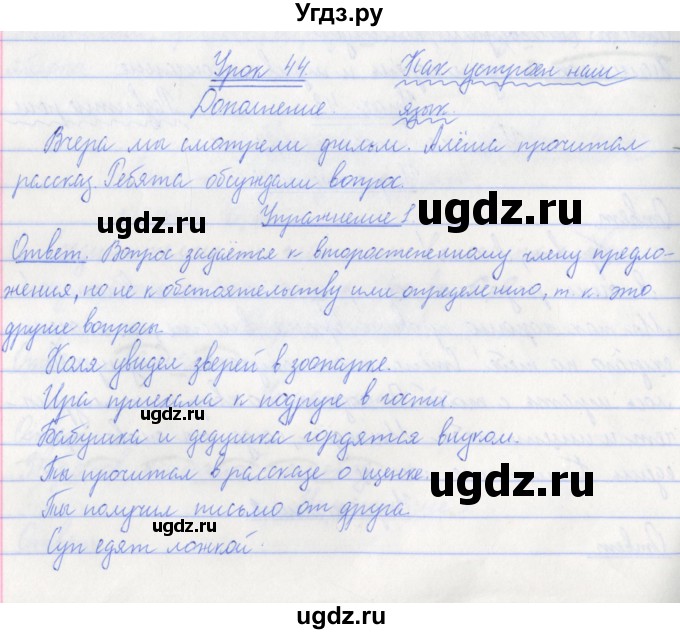 Угдз.ру
Урок 44. Как устроен наш
Дополнение. язык.
Вчера мы смотрели фильм. Алёша прочитал
рассказ. Ребята обсуждали вопрос.
ugdz.ru ugdz.ru
Упражнение 1
Ответ. Вопрос задаётся к второстепенному члену предло-
жения, но не к обстоятельству или определению, т. к. это
другие вопросы.
ugdz.ru
Коля увидел зверей в зоопарке.
Ира приехала к подруге в гости.
ugdz.ru
Бабушка и дедушка гордятся внуком.
Ты прочитал в рассказе о щенке.
ugdz.ru ugdz.ru
Ты получил письмо от друга.
ugdz.ru
Суп едят ложкой.
ugdz.ru